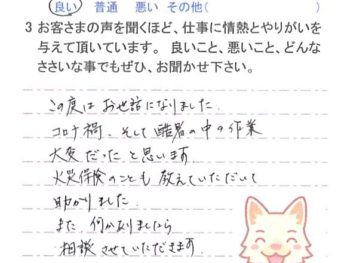 良い 普通 悪い その他( )
3 お客さまの声を聞くほど、仕事に情熱とやりがいを
与えて頂いています。 良いこと、悪いこと、どんな
ささいな事でもぜひ、お聞かせ下さい。
この度はお世話になりました
コロナ禍、そして酷暑の中の作業
大変だったと思います
火災保険のことも教えていただいて
助かりました
また何かありましたら
相談させていただきます